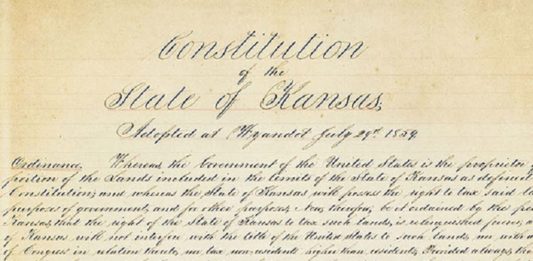 Constitution
of the
State of Kansas,
Adopted at Wyandot July 29th 1859,
Ordinance. Whereas, the Government of the United States is the proprietor
portion of the Lands included in the limits of the State of Kansas as defined
Constitution; and whereas the State of Kansas will possess the right to tax said la
purposes of government, and for other purposes; Now, therefore, be it ordained by the peo
Kansas, that the right of the State of Kansas to tax such lands, is relinquished forever, a
of Kansas will not interfere with the title of the United States to such lands, nor with a
of Congress in relation thereto, nor tax non-residents higher than residents, Provided always, th